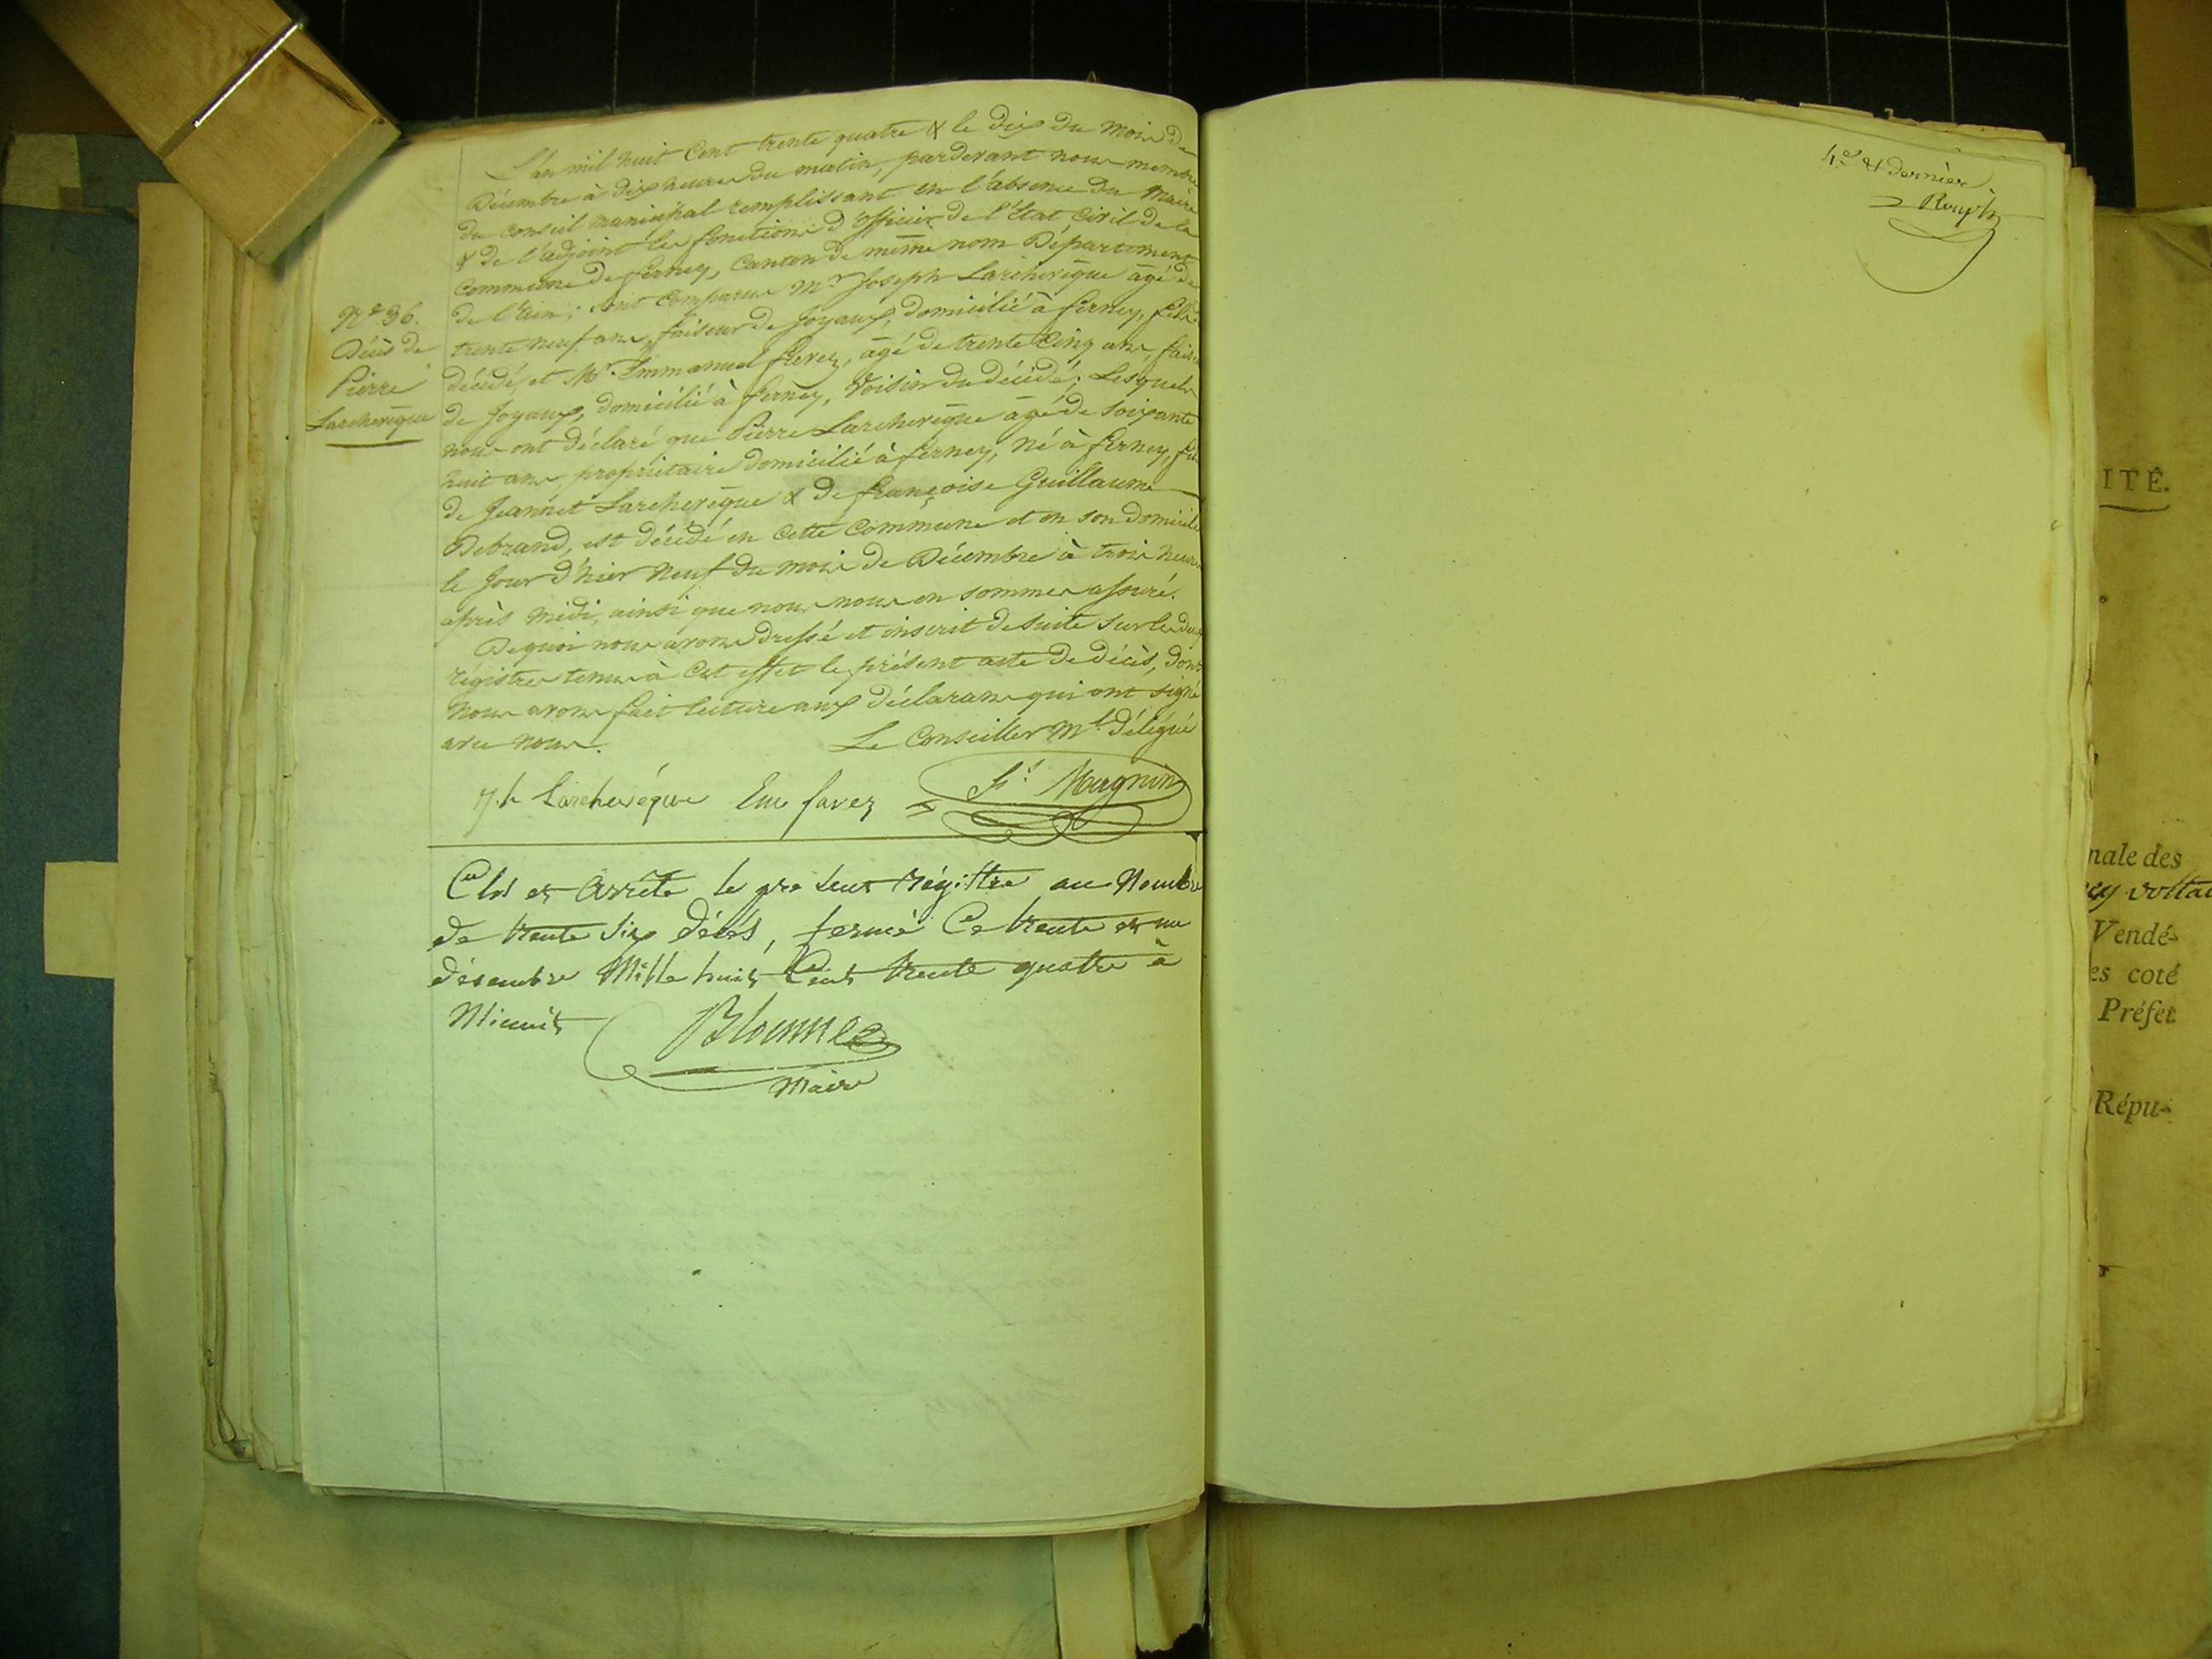 L'an mil huit Cent trente quatre & le dix du mois de
Décembre à dix heures du matin, pardevant nous membre
du Conseil municipal remplissant en l'absence du Maire
& de l'adjoint les fonctions d'officier de l'État Civil de la
Commune de ferney, Canton de même nom Département
de l'Ain; sont comparus Mr Joseph Larchevêque âgé de
trente neuf ans, faiseur de Joyaux, domicilié à ferney, fils
décédé et Mr Emmanuel favez, âgé de trente Cinq ans, faiseur
de Joyaux, domicilié à ferney, Voisin du décédé; Lesquels
nous ont déclaré que Pierre Larchevêque âgé de soixante
huit ans, propriétaire domicilié à ferney, né à ferney, fils
de Jeannet Larchevêque & de françoise Guillaume
Debrand, est décédé en cette Commune et en son domicile
le Jour d'hier neuf du mois de Décembre à trois heures
après midi, ainsi que nous nous en sommes assuré.
De quoi nous avons dressé et inscrit de suite sur les deux
régistres tenus à cet effet le présent acte de décès, dont
Nous avons fait lecture aux déclarans qui ont signé
avec nous.
Le Conseiller Ml délégué
Jh Larchevêque Em favez fs Magnin
No 36.
Décès de
Pierre
Larchevêque
Clos et Arrêté le présent régistre au Nombre
de trente six décès, fermé Ce trente et un
décembre Mille huit Cent trente quatre à
Minuit
Maire
4e & dernier
ITÉ.
nale des
ey voltai
Vendé-
es coté
Préfet
Répu-